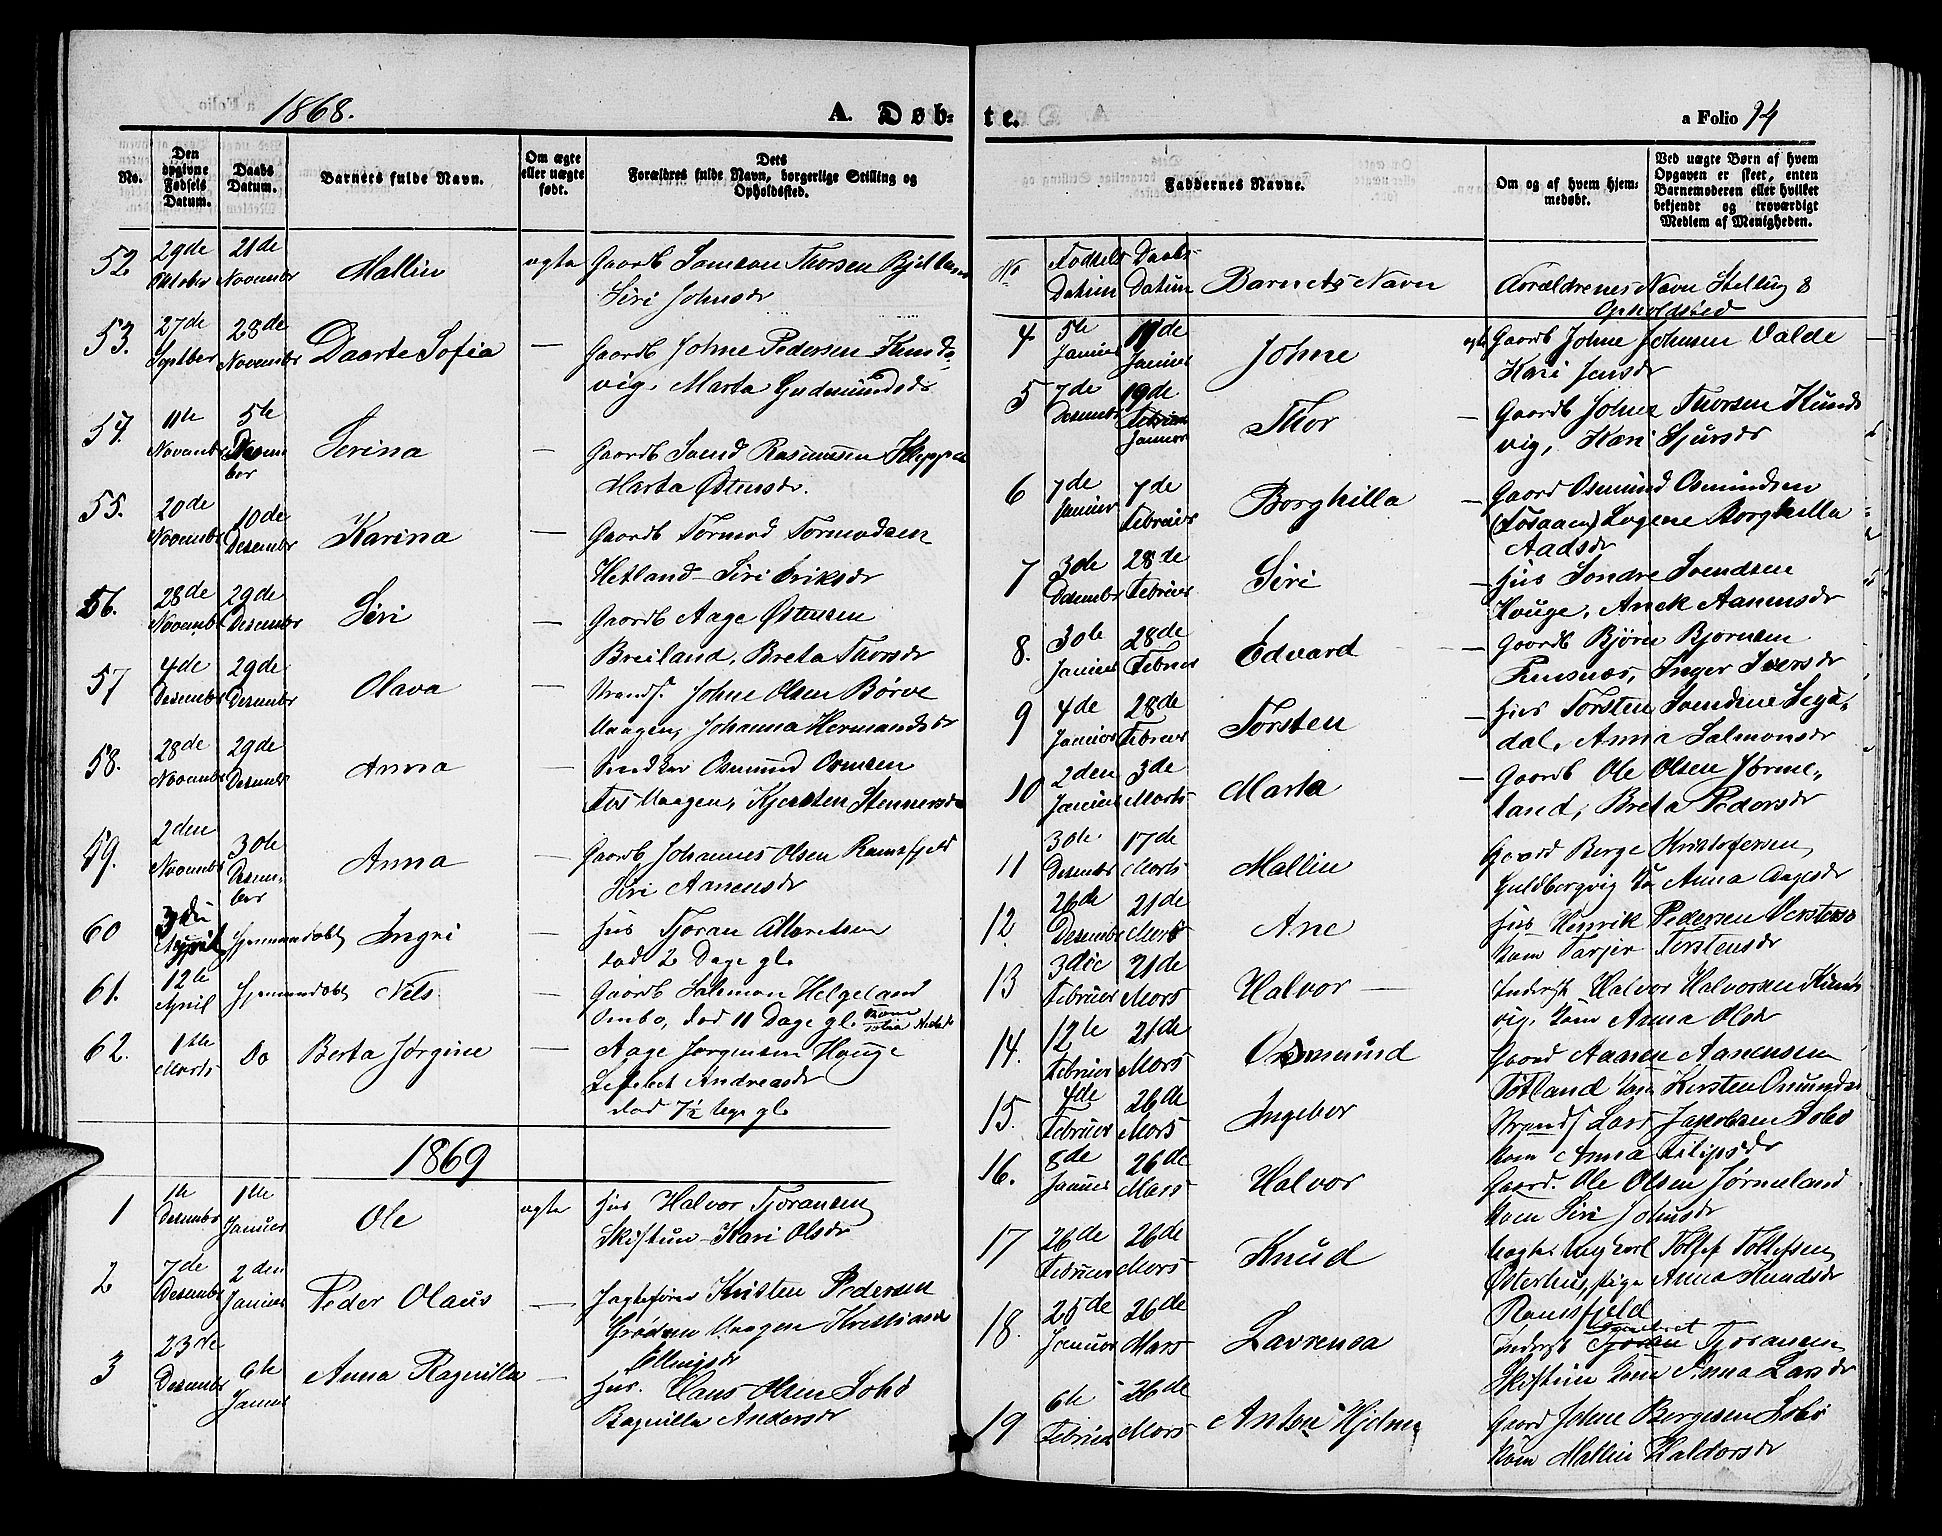 1868.
A. Døb-
te.
a Folio 94
No.
Den opgivne Fødsels Datum.
Daabs Datum.
Barnets fulde Navn.
Om ægte eller uægte født.
Dets Forældres fulde Navn, borgerlige Stilling og Opholdssted.
52. 29de Oktober 21de Novembr Mallin ægte Gaardb Samson Thorsen Bjelland
Siri Johnsdr
53. 27de Septbr 28de Novembr Daarte Sofia — Gaardb Johne Pedersen Kunds-
vig, Marta Gudmundsdr
54. 11te Novembr 5te Desember Serina — Gaardb Svend Rasmussen Kleppa
Marta Østensdr.
55. 20de Novembr 10de Desembr Karina — Gaardb Tormod Tormodsen
Hetland - Siri Eriksdr
56. 28de Novembr 29de Desembr Siri — Gaardb Aage Østensen
Breiland, Breta Thorsdr
57 4de Desembr 29de Desembr Olava — Strands. Johne Olsen Børve
Vaagen, Johanna Hermandsdr
58. 28de Novembr 29de Desembr Anna — Osmund
Vaagen, Kjersten Stennersdr
59. 2den Novembr 30te Desember Anna — Gaardb Johannes Olsen Ramsfjeld
Siri Aanensdr
60 April hjemmendøbt Ingri — Hus Tjøran
død 2 Dage gl.
61. 12te April hjemmendøbt Nels — Gaardb Salomon Helgeland
Ombo, død 11 Dage gl.
62. 1ste Marts Do Berta Jørgine — Aage Jørgensen Hauge
Andreasdr
død 7½ gl.
1869
1 1te Desembr 1ste Januer Ole ægte Hus Halvor Tjøransen
Skiftun - Kari Olsdr
2 7de Desembr 2den Januer Peder Olaus — Jagtefører Kristen Pedersen
Vaagen Kristiane
Ellingsdr
3 23de Desembr 6te Januer Anna Ragnilla — Hus. Hans Olsen Sobø
Ragnilla Andersdr
Faddernes Navne.
Om og af hvem hjemmedøbt.
Ved uægte Børn af hvem Opgaven er skeet, enten Barnemoderen eller hvilket bekjendt og troværdigt Medlem af Menigheden.
No Fødsels Datum Daabs Datum Barnets Navn Forældrenes Navn Stelling &
Opholdsted
4 5te Januer 17de Januer Johne ægte Gaardb Johne Johnsen Valde
Kari Jensdr
5 7de Desembr 19de Januer Thor — Gaardb Johne Thorsen Kunds
vig, Kari Sjursdr
6 7de Januer 7de Februer Borghilla — Gaard Osmund Osmundsen
(Fosaaen) Lugene Borghilla
Aadsdr
7 30te Desembr 28de Februer Siri — Hus Søndre Svendsen
Houge, Anek Aanensdr
8. 30te Januer 28de Februer Edvard — Gaardb Bjørn Bjørnsen
Inger Iversdr
9 4de Januer 28de Februer Torsten — Hus Torsten Svendsen Sega-
dal, Anna Salmonsdr
10 2den Januer 3de Marts Marta — Gaardb Ole Olsen Jørme-
land, Breta Pedersdr
11 30te Desembr 17de Marts Mallin Gaard Berge Kristofersen
Guldbergvig Kone Anna Aagesdr
12. 26de Desembr 21de Mars Ane Hus Henrik Pedersen Vestersø
Kone Tarjer Torstensdr
13 3die Februer 21de Mars Halvor — Inderst Halvor Halvorsen Kunds
vig, Kone Anna Olsdr
14. 12te Februer 21de Mars Osmund Gaard Aanen Aanensen
Totland Kone Kersten Osmundsdr
15. 4de Februer 26de Mars Ingebor Strands Lars Jakobsen Sobø
Kone Anna Filipsdr
16. 8de Januer 26de Mars Halvor Gaard. Ole Olsen Jørmeland
Kone Siri Johnsdr
17 26de Februer 26de Mars Knud uægte Ungkarl Tollef Tollefsen
Østerhus, Pige Anna Knudsdr
Ramsfjeld
18. 25de Januer 26de Mars Lavrensa Inderst Tjøransen
Skiftun Kone Anna Larsdr
19 6te Februer 26de Mars Anton Hjelm Gaard Johne Bergesen Sobø
Kone Mallin Haldorsdr